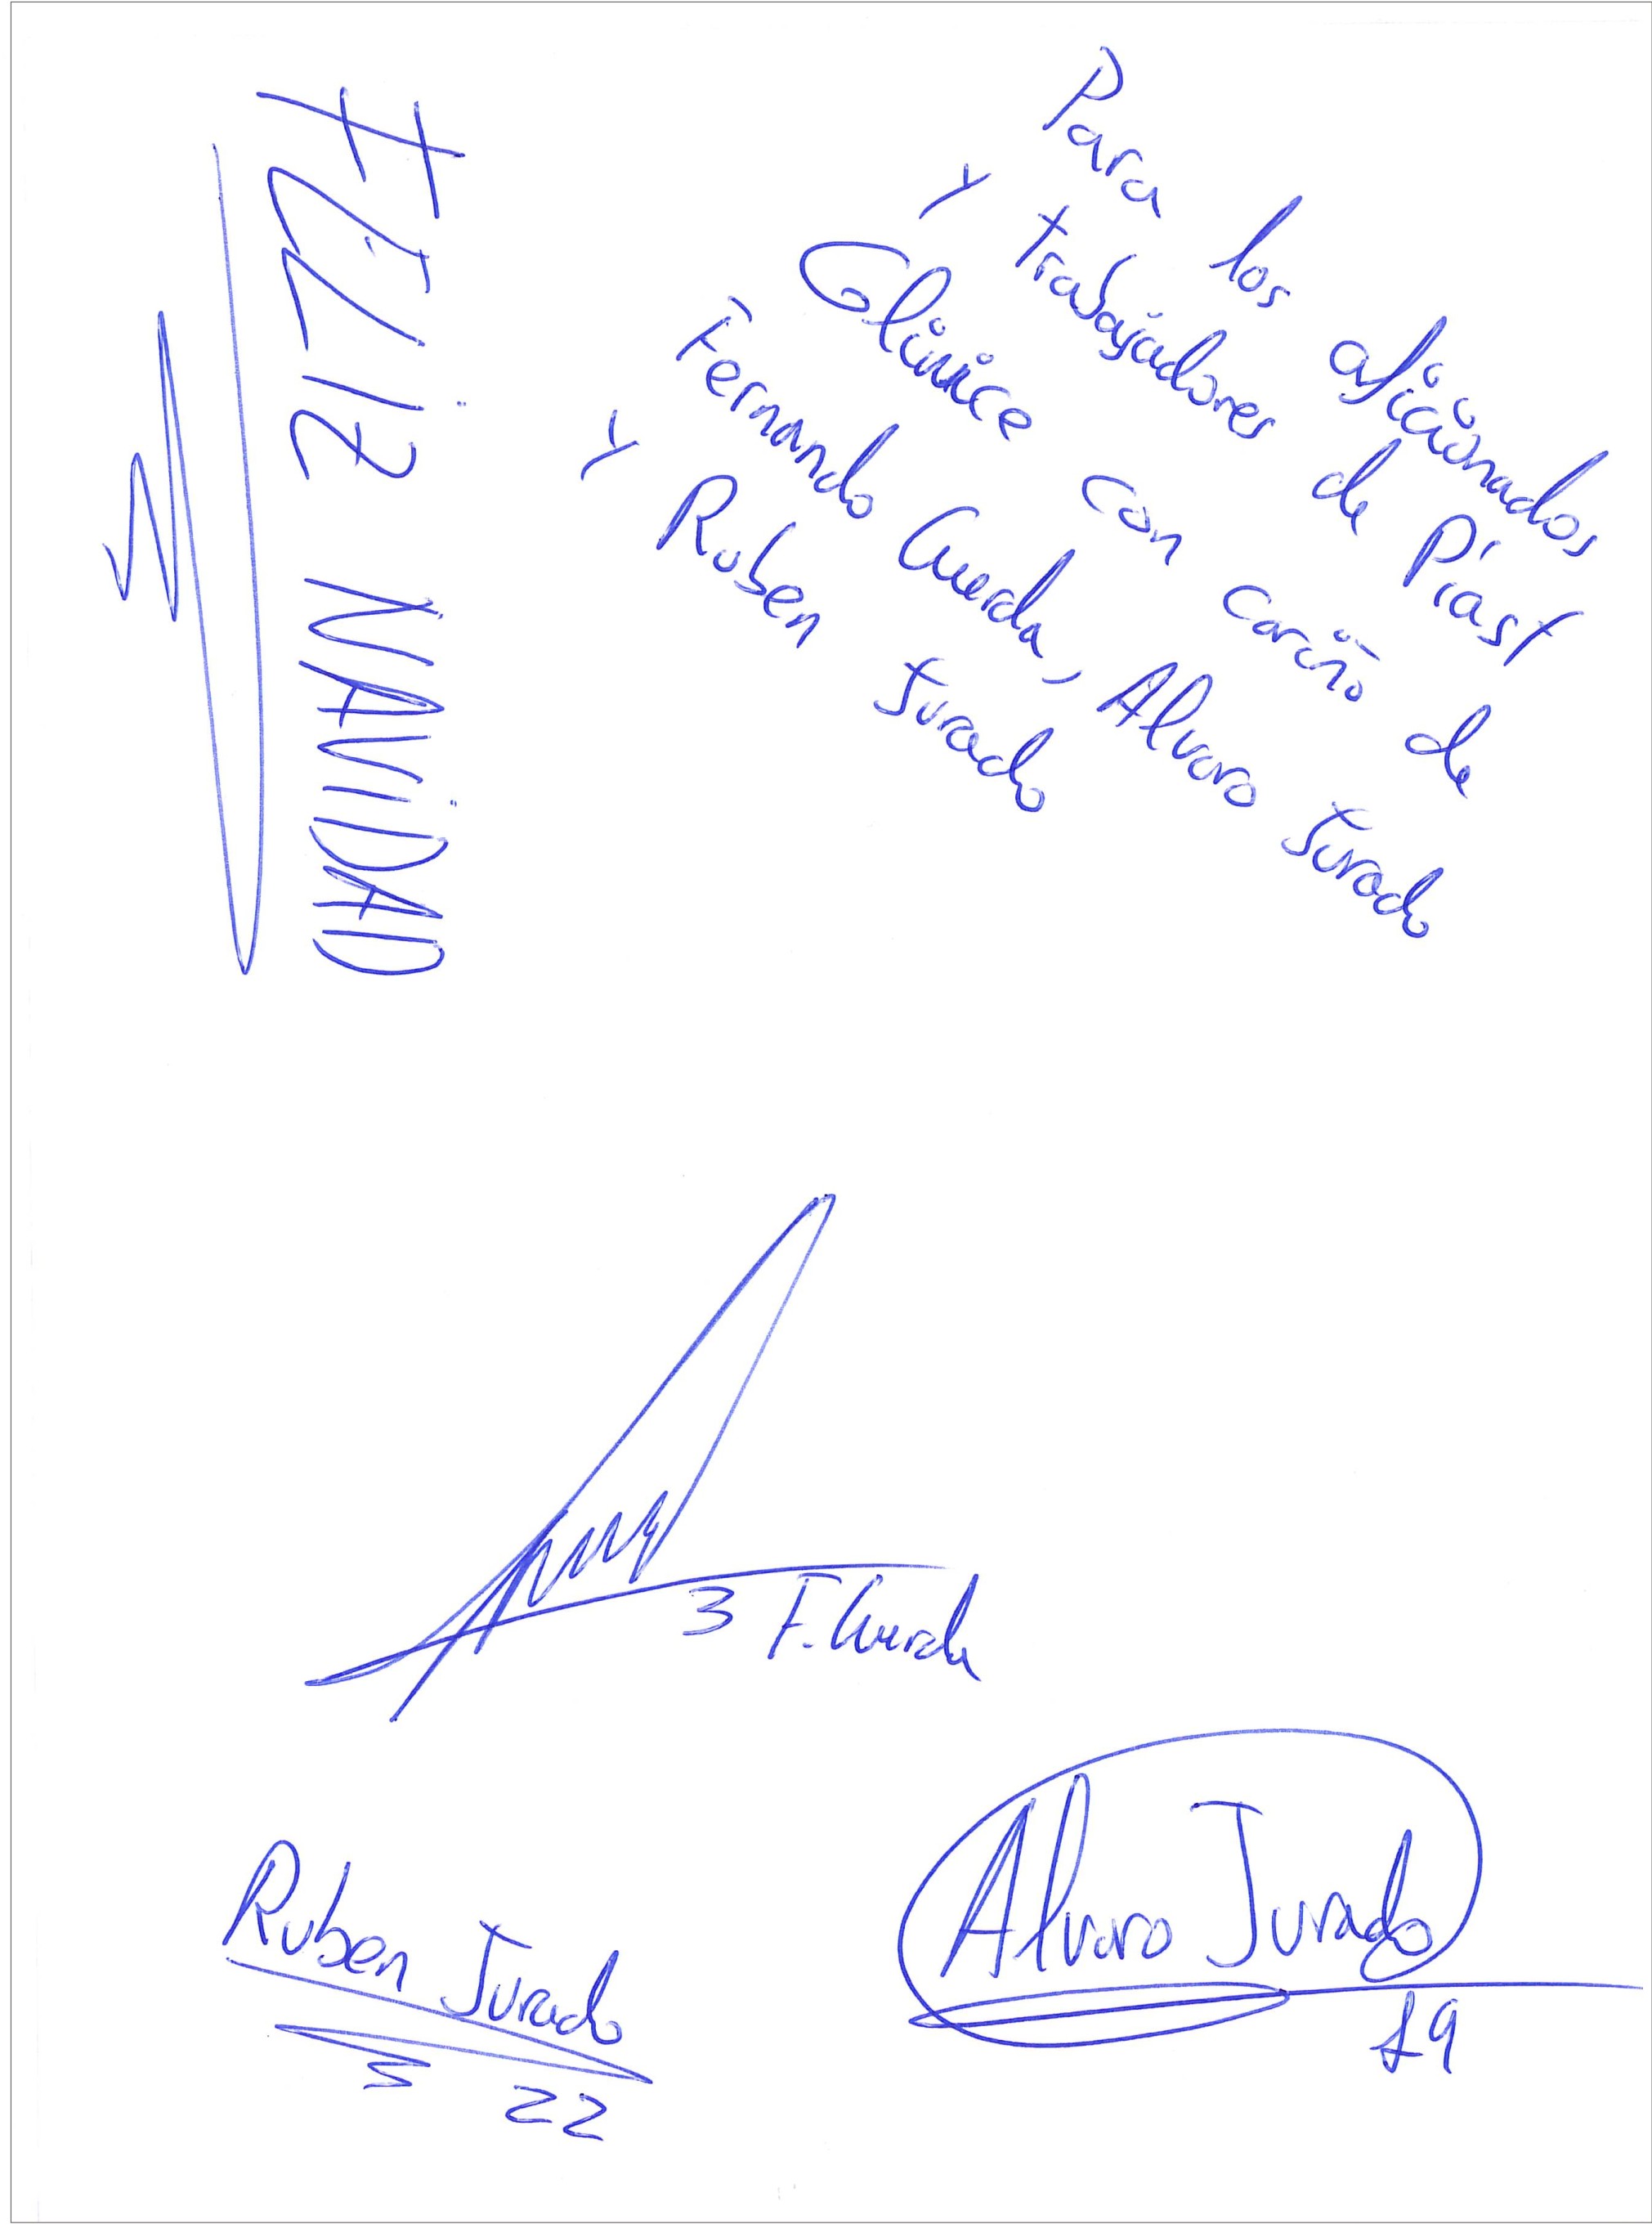 Para los aficionados
y trabajadores de Piast
Gliwice con cariño de
Fernando Cuerda, Alvaro Jurado
y Ruben Jurado
FELIZ NAVIDAD
3 F. Cuerda
Ruben Jurado
22
Alvaro Jurado
19